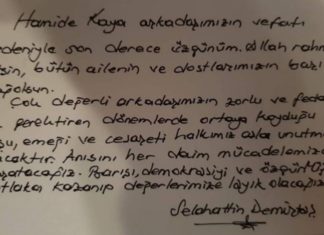 Hamide Kaya arkadaşımızın vefatı
edeniyle son derece üzgünüm. Allah rahm
sin, bütün ailenin ve dostlarımızın başı
ağolsun.
Çok değerli arkadaşımızın zorlu ve feda
gerektiren dönemlerde ortaya koyduğu
şu, emeği ve cesareti halkımız asla unutma
caktır. Anısını her daim mücadelemize
şatacağız. Barışı, demokrasiyi ve özgürlüğ
tlaka kazanıp değerlerimize layık olacağız
Selahattin Demirtaş